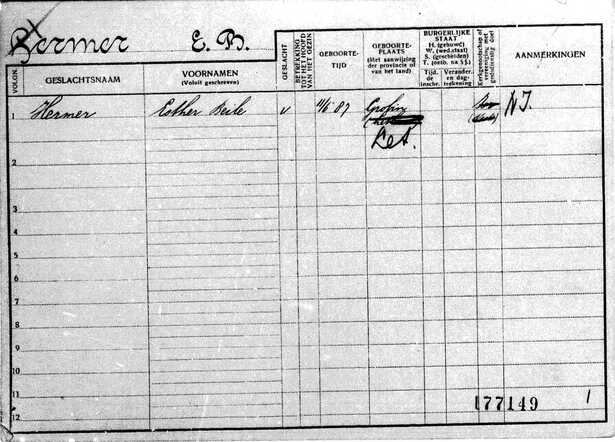 Hermer E. B.
VOLGN.
GESLACHTSNAAM
VOORNAMEN
(Voluit geschreven)
GESLACHT
BETREKKING
TOT HET HOOFD
VAN HET GEZIN
GEBOORTE-
TIJD
GEBOORTE-
PLAATS
(Met aanwijzing
der provincie of
van het land)
BURGERLIJKE
STAAT
H. (gehuwd)
W. (wed.staat)
S. (gescheiden)
T. (ontb. na 5 j.)
Tijd.
de
inschr.
Verander.
en dag-
teekening
Kerkgenootschap of
vereeniging met
godsdienstig doel
AANMERKINGEN
1 Hermer Esther Beile v 87 N I.
Let.
2
3
4
5
6
7
8
9
10
11
12
177149 1